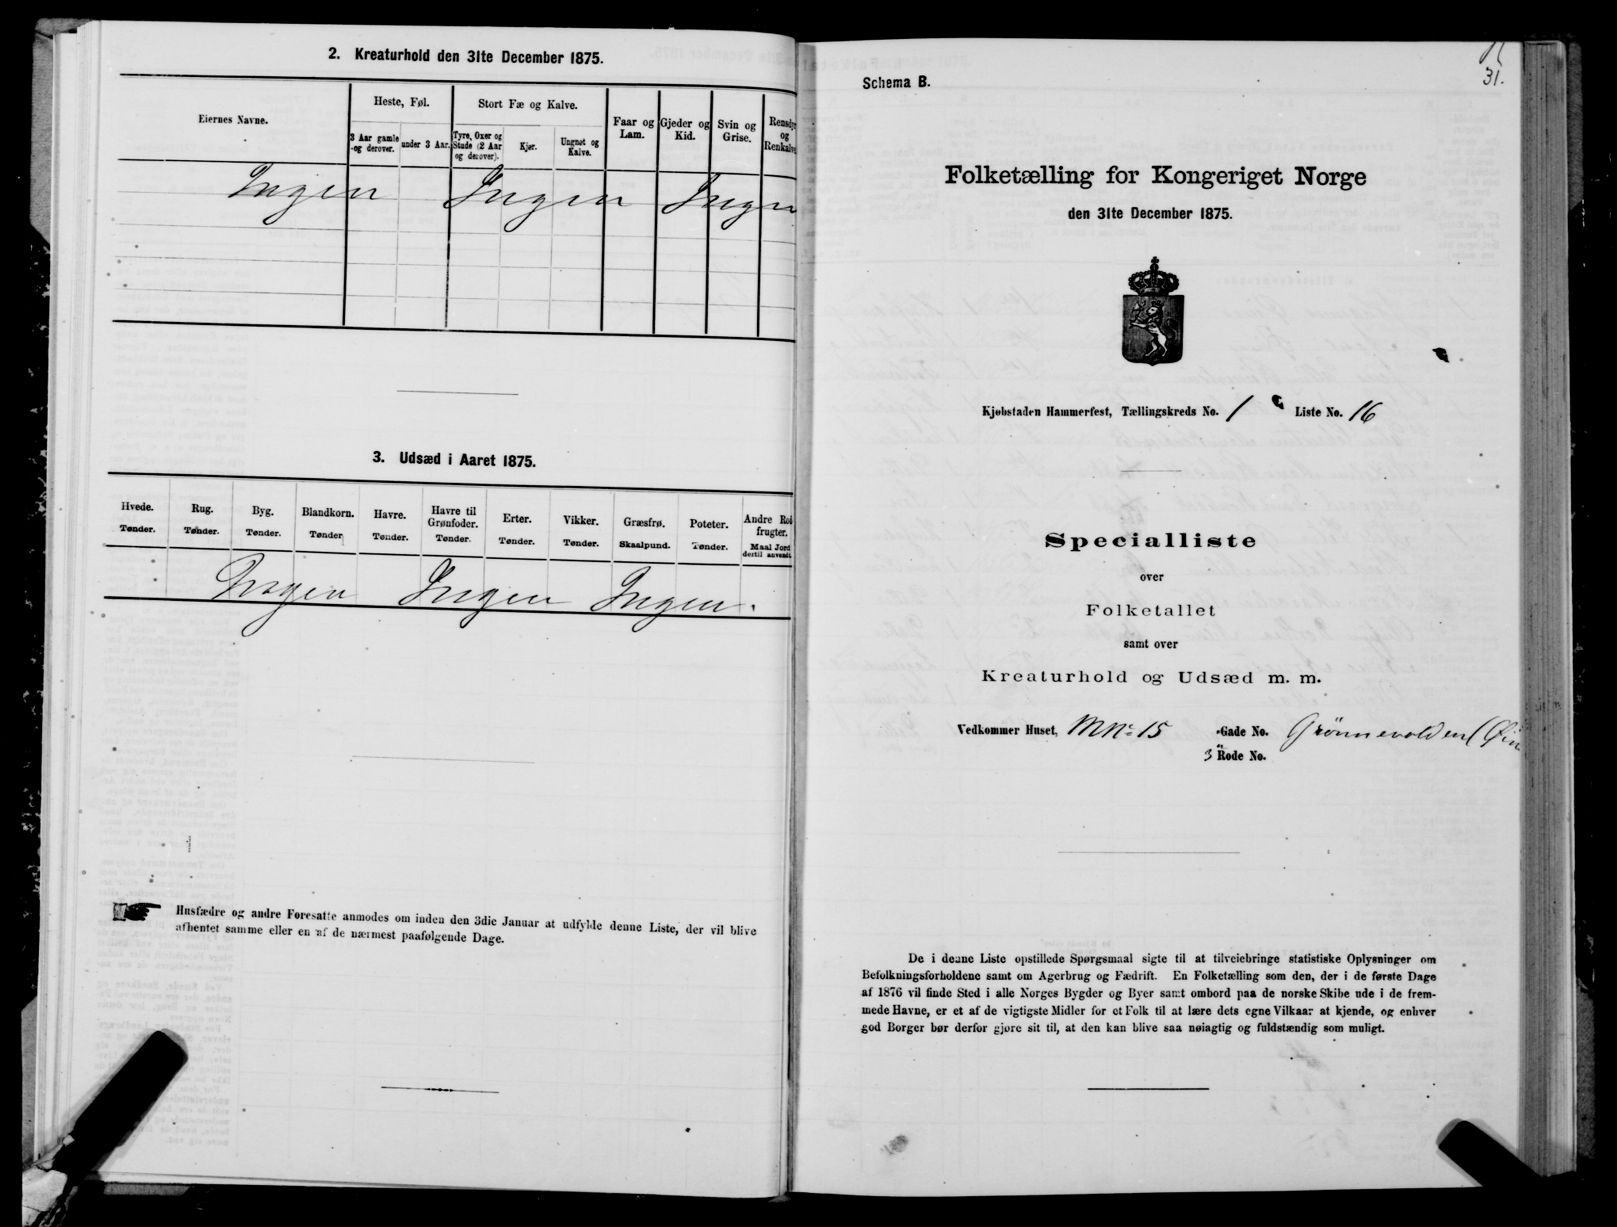 2. Kreaturhold den 31te December 1875.
Eiernes Navne.
Heste, Føl.
Stort Fæ og Kalve.
Faar og Lam.
Gjeder og Kid.
Svin og Grise.
Rensdyr og Renkalve
3 Aar gamle og derover.
under 3 Aar.
Tyre, Oxer og Stude (2 Aar og derover).
Kjør.
Ungnøt og Kalve.
Ingen Ingen Ingen
3. Udsæd i Aaret 1875.
Hvede. Rug. Byg. Blandkorn. Havre. Havre til Grønfoder. Erter. Vikker. Græsfrø. Poteter. Andre Rodfrugter.
Tønder. Tønder. Tønder. Tønder Tønder. Tønder. Tønder. Tønder. Skaalpund. Tønder. Maal Jord dertil anvendt
Ingen Ingen Ingen.
Husfædre og andre Foresatte anmodes om inden den 3die Januar at udfylde denne Liste, der vil blive
afhentet samme eller en af de nærmest paafølgende Dage.
31.
Schema B.
Folketælling for Kongeriget Norge
den 31te December 1875.
Kjøbstaden Hammerfest, Tællingskreds No. 1 Liste No. 16
Specialliste
over
Folketallet
samt over
Kreaturhold og Udsæd m. m.
Vedkommer Huset, MNo 15 -Gade No. Grönnevolden
3 Rode No.
De i denne Liste opstillede Spørgsmaal sigte til at tilveiebringe statistiske Oplysninger om
Befolkningsforholdene samt om Agerbrug og Fædrift. En Folketælling som den, der i de første Dage
af 1876 vil finde Sted i alle Norges Bygder og Byer samt ombord paa de norske Skibe ude i de frem-
mede Havne, er et af de vigtigste Midler for et Folk til at lære dets egne Vilkaar at kjende, og enhver
god Borger bør derfor gjøre sit til, at den kan blive saa nøiagtig og fuldstændig som muligt.